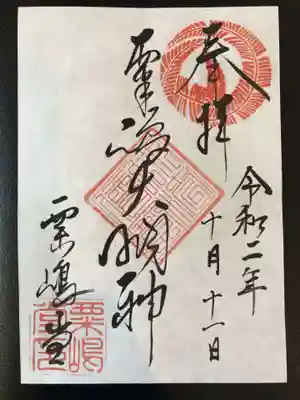 奉拝
令和二年
十月十一日
粟嶋大明神
粟嶋堂
粟嶋堂印